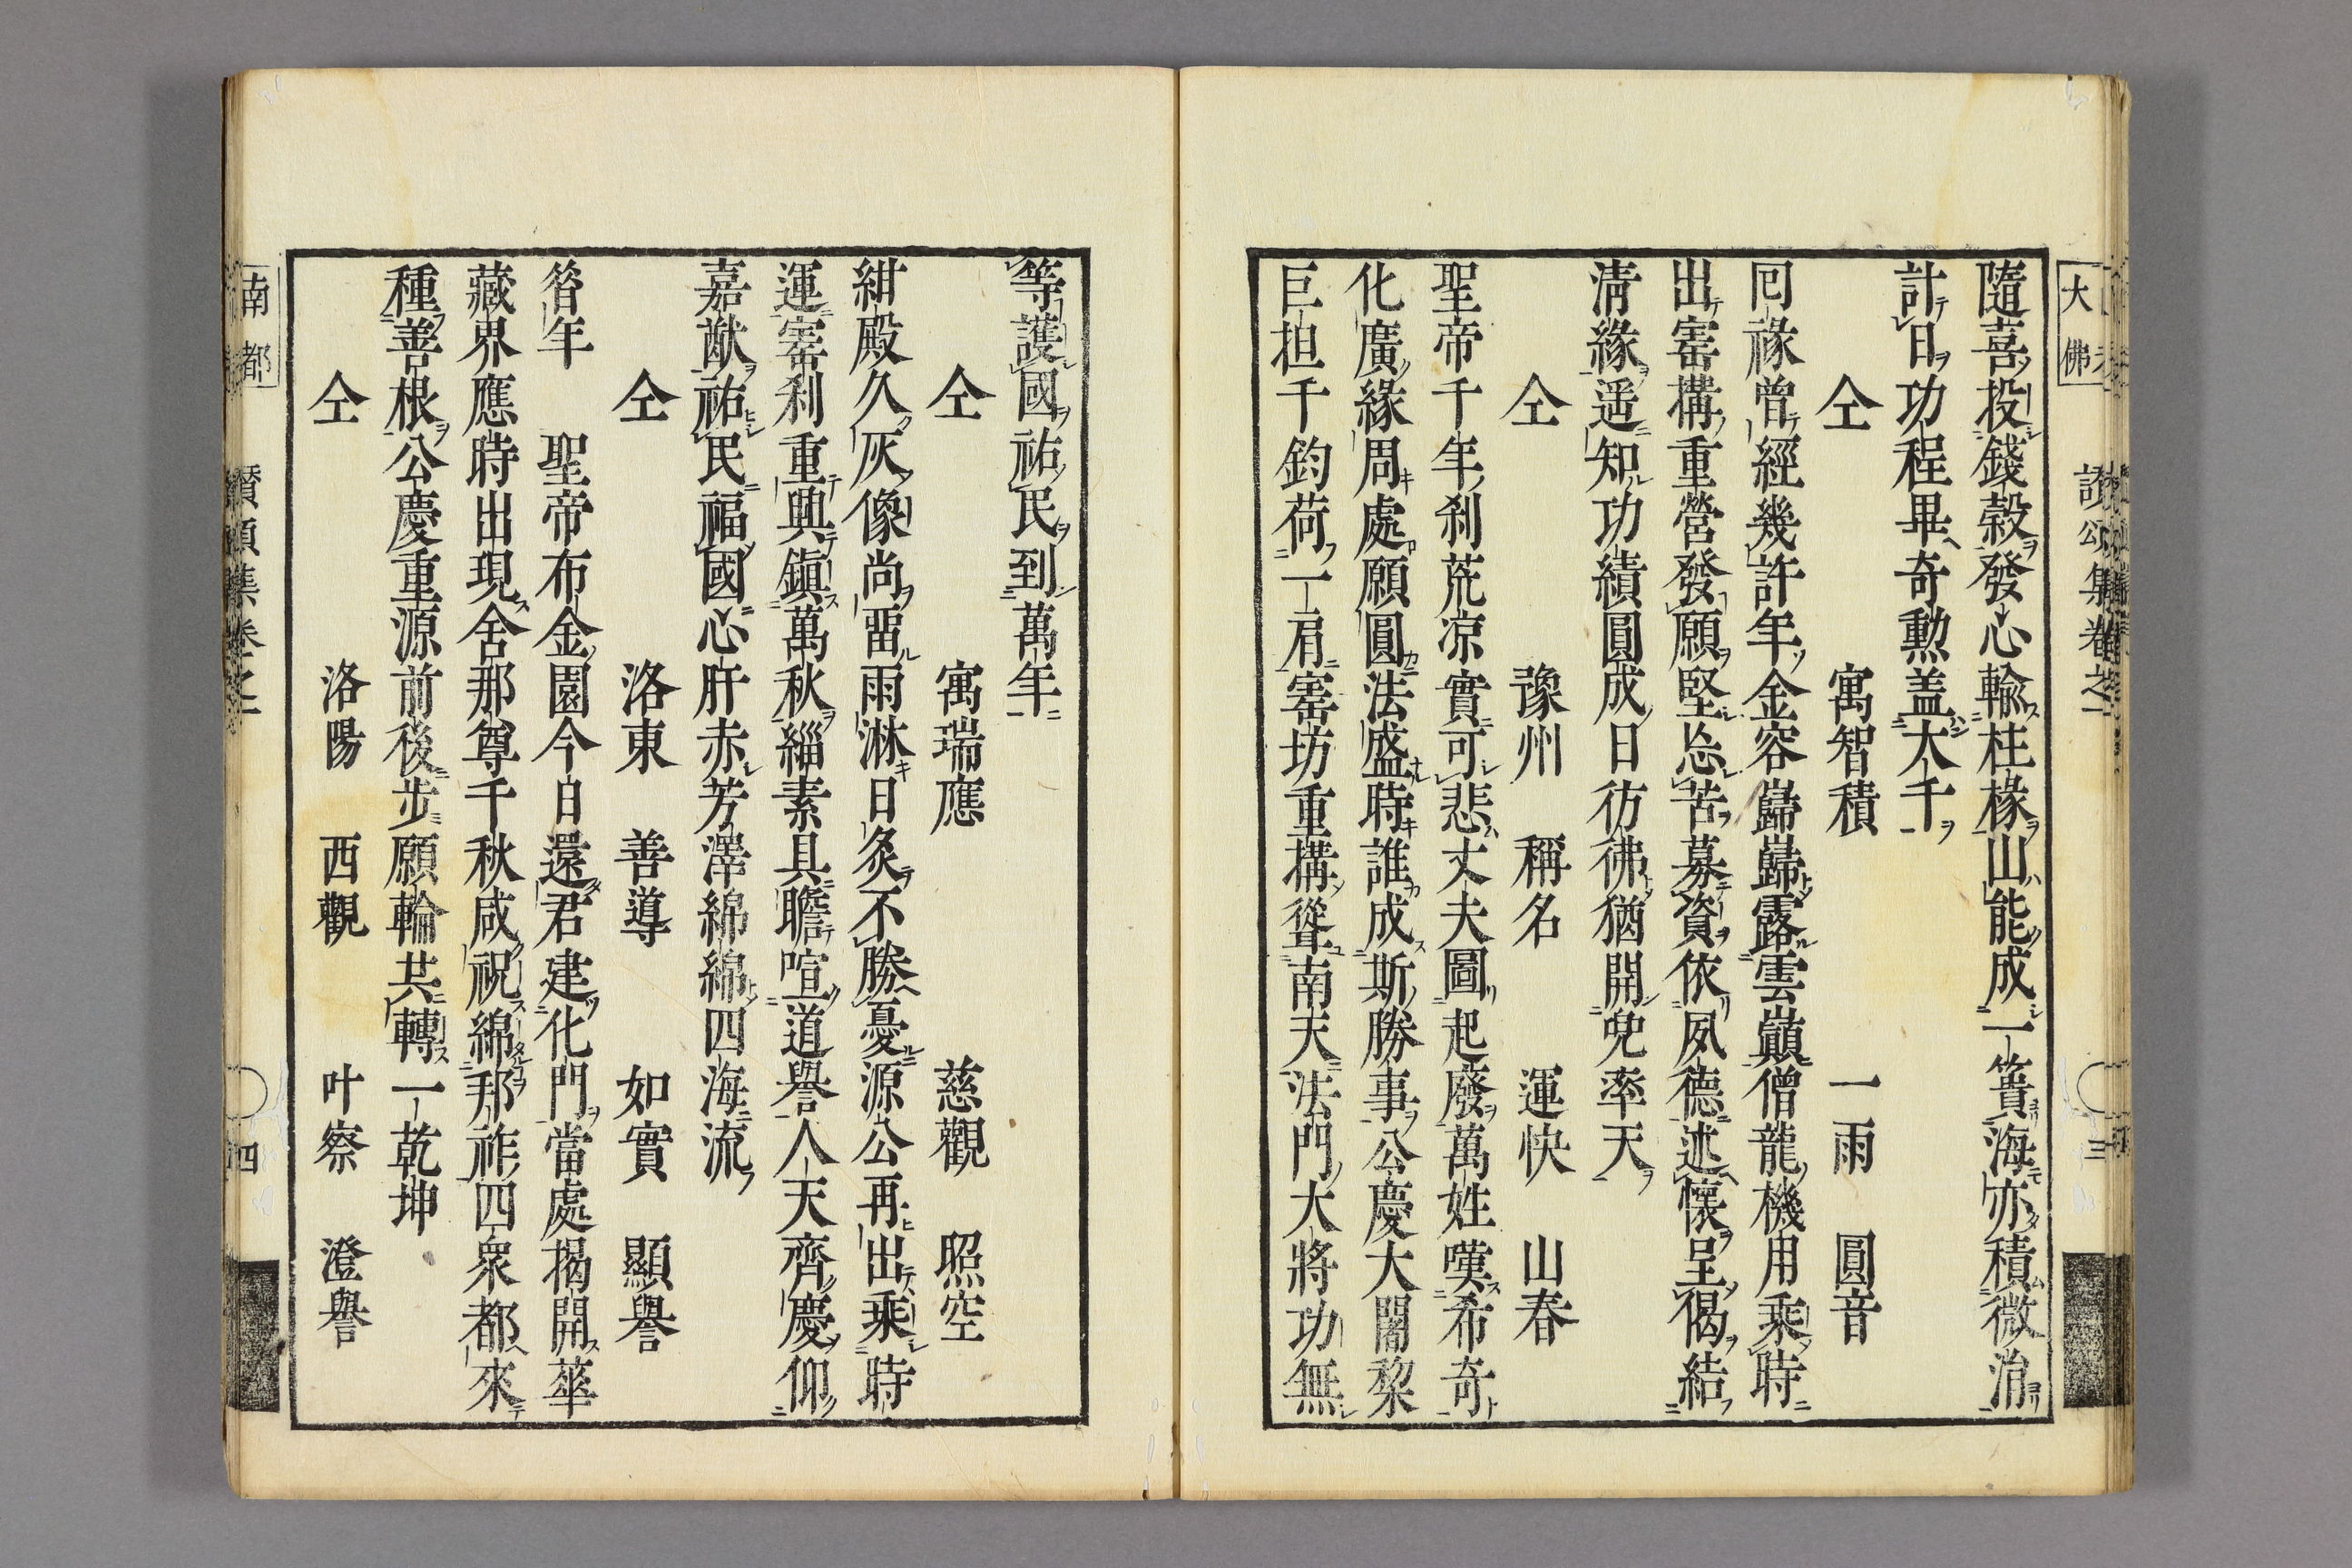 大佛 讃頌集卷之一 三
隨喜投錢穀發心輸柱椽山能成一簣海亦積微涓
計日功程畢奇勲盖大千
仝 寓智積 一雨 圓音
回祿曽經幾許年金容巋巋露雲巔僧龍機用乘時
出窑構重營發願堅忘苦募資依夙德述懷呈偈結
淸緣遥知功績圓成日彷彿猶開兜率天
仝 豫州 稱名 運快 山春
聖帝千年刹荒凉實可悲丈夫圖起廢萬姓嘆希奇
化廣緣周處願圓法盛時誰成斯勝事公慶大闍棃
巨担千鈞荷一肩窑坊重構聳南天法門大將功無
等護國祐民到萬年
仝 寓瑞應 慈觀 照空
紺殿久灰像尚畱雨淋日炙不勝憂源公再出乘時
運寳刹重興鎭萬秋緇素具瞻喧道譽人天齊慶仰
嘉猷祐民福國心肝赤芳澤綿綿四海流
仝 洛東 善導 如實 顯譽
昝年 聖帝布金園今日還君建化門當處揭開華
藏界應時出現舍那尊千秋咸祝綿邦祚四衆都來
種善根公慶重源前後步願輪共轉一乾坤
仝 洛陽 西觀 叶察 澄譽
南都 讃頌集卷之一 四